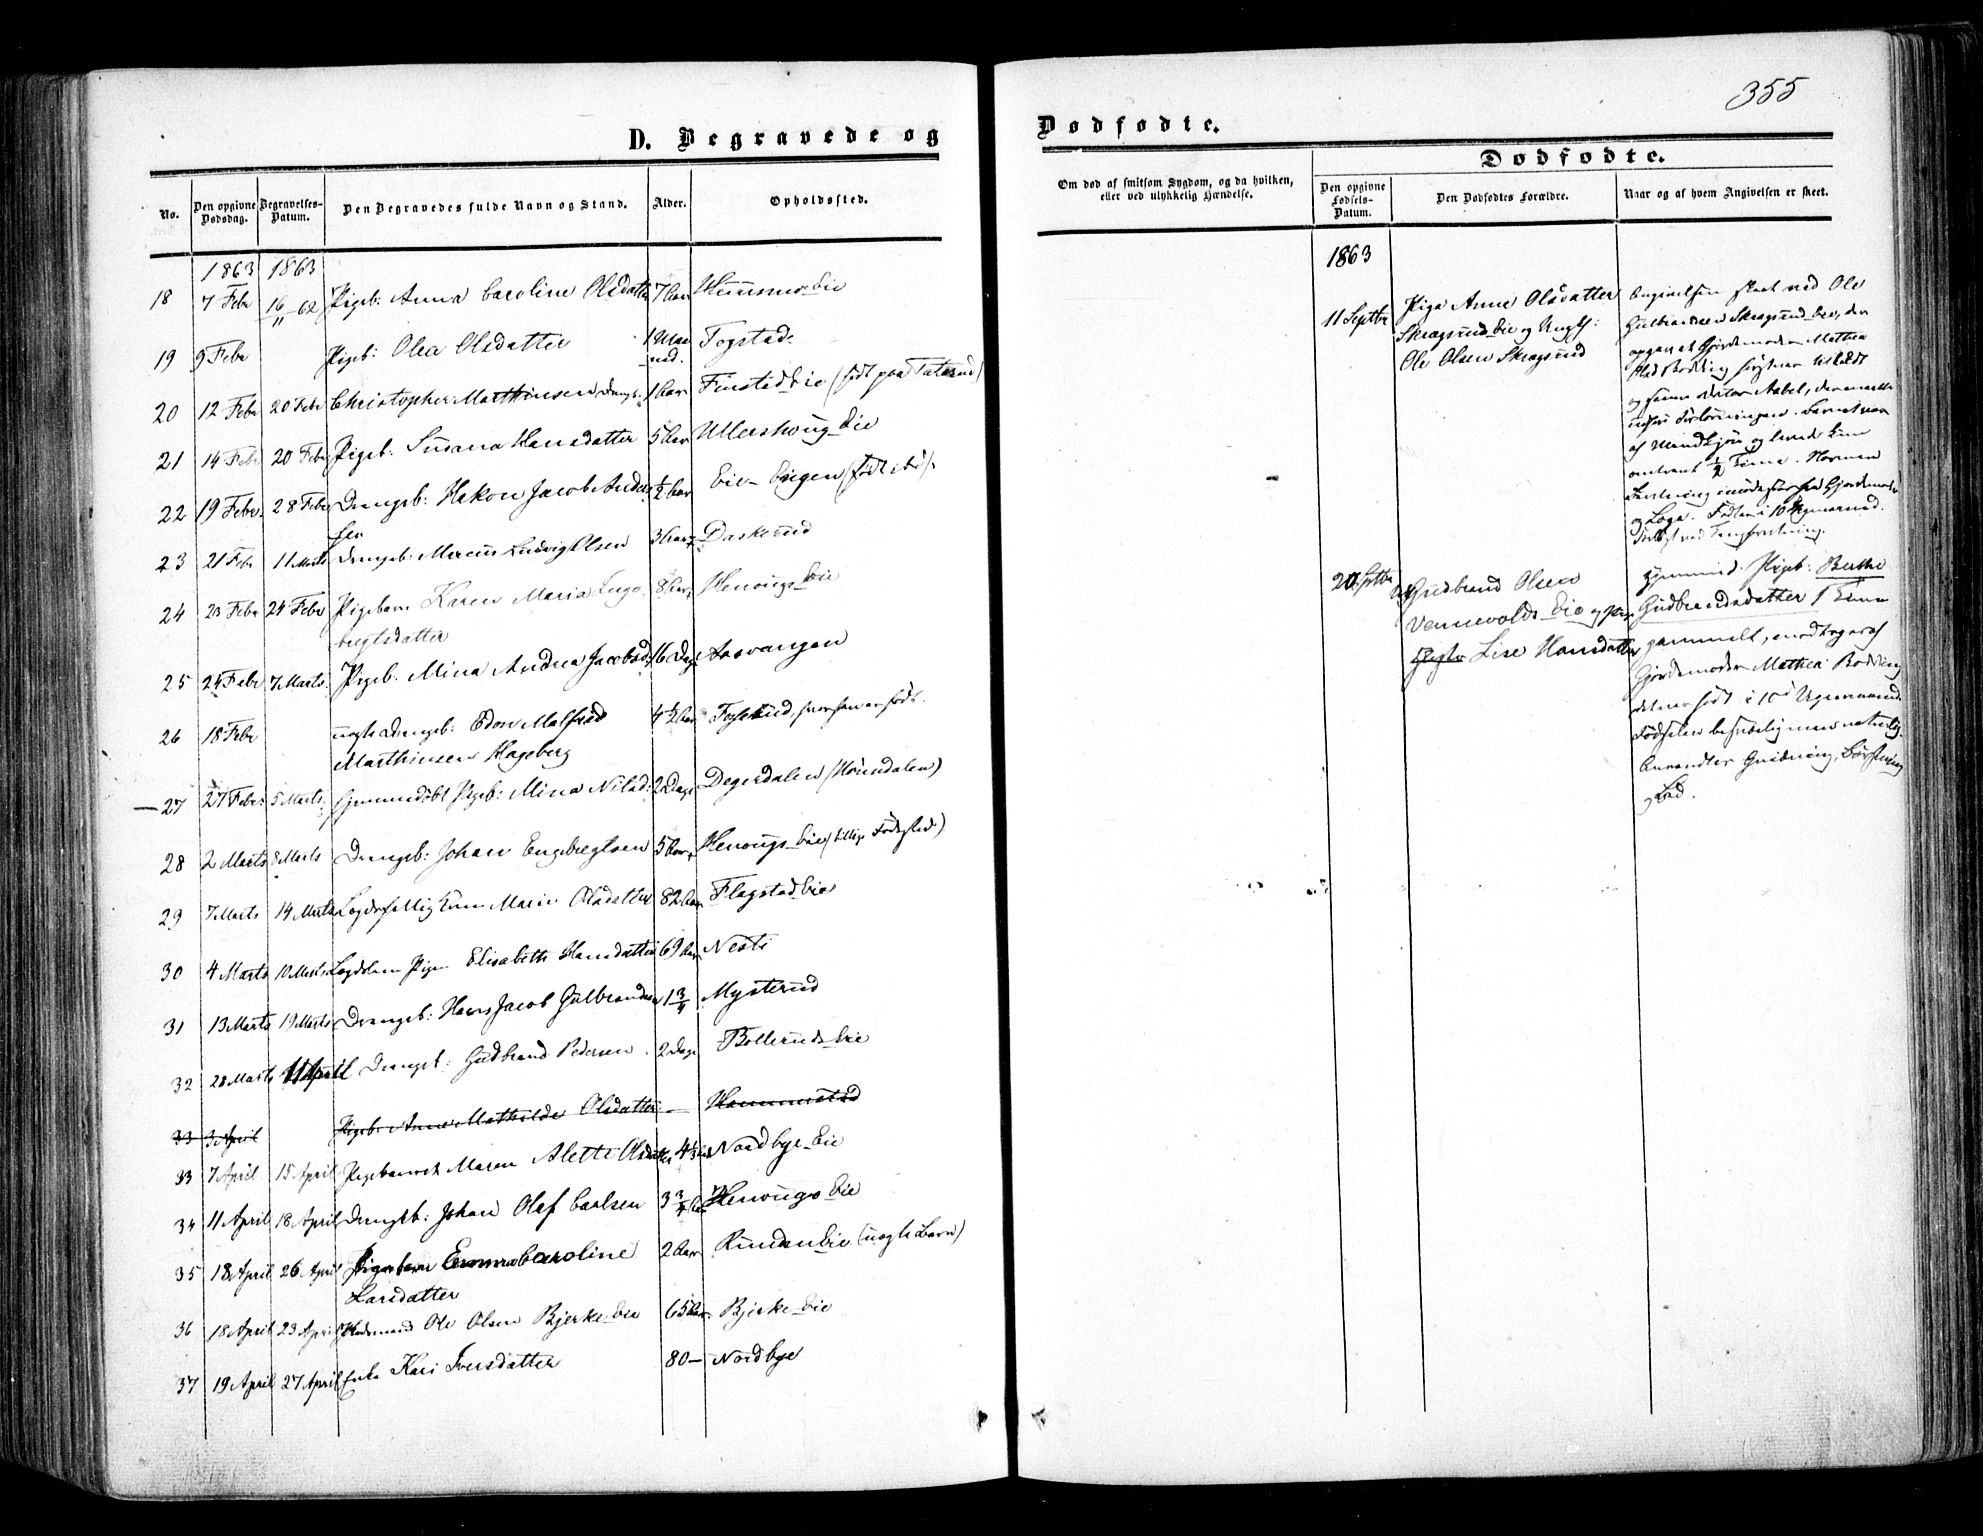 355
D. Begravede og
Dødfødte.
No.
Den opgivne Dødsdag.
Begravelses-Datum.
Den Begravedes fulde Navn og Stand.
Alder.
Opholdssted.
Om død af smitsom Sygdom, og da hvilken,
eller ved ulykkelig Hændelse.
Dødfødte.
Den opgivne Fødsels-Datum.
Den Dødfødtes Forældre.
Naar og af hvem Angivelsen er skeet.
1863 1863
18 7 Febr 16/11 62 Pigeb: Anna Caroline Olsdatter 7 Aar Eie
19 9 Febr Pigeb: Olea Olsdatter 1 Maaned. Fogstad
20 12 Febr 20 Febr Christopher Marthinsen Drengb. 1 Aar Finstad Eie (født paa Taterud)
21 14 Febr 20 Febr Pigeb. Susana Hansdatter 5 Aar Ullershoug Eie
22 19 Febr. 28 Febr Drengeb: Hakon Jacob Andersen 1/2 Aar Eie- Engen (født ibid):
23 21 Febr 11 Marts Drengeb. Marcus Ludvig Olsen 3 Aar Daskerud
24 23 Febr 24 Febr Pigebarn Karen Maria Inge-
bregtsdatter 8 Aar Henougs Eie
25 24 Febr 7 Marts. Pigeb. Mina Andrea Jacobsd: 16 Dage Aasvangen
26 18 Febr uægte Drengeb: Edon Malfred
Marthinsen Hageberg 4 1/2 Aar Foglerud, hvor han er født.
27 27 Febr: 5 Marts. hjemmedøbt Pigeb: Mina Nilsd: 2 Dage Degerdalen (Houndalen)
28 2 Marts 8 Marts Drengeb: Johan Engebregtsen 5 Aar Henougs Eie (tillige Fødested)
29 7 Marts 14 Marts Lægdsfattig Enke Marie Olsdatter 82 Aar Flagstad Eie
30 4 Marts 10 Marts Lægdslem Pigen Elisabeth Hansdatter 69 Aar Nesti
31 13 Marts 19 Marts Drengeb: Hans Jacob Gulbrandsen 1 3/4 Mysterud
32 28 Marts 11 April Drengeb: Gudbrand Pedersen. 2 Dage Bollerud Eie
33 3 April Pigeb. Anne Mathilde Olsdatter — Hammerstad
33 7 April 15 April Pigebarnet Maren Alette Olsdatter 4 1/3 Aar Nordbye Eie
34 11 April 18 April Drengeb: Johan Olaf Carlsen 3 3/4 Aar Henougs Eie
35 18 April 26 April Pigebarn Emma Caroline
Larsdatter 2 Aar Rundsen Eie (uægte Barn)
36 18 April 23 April Huusmand Ole Olsen Bjerke Eie 65 Aar. Bjerke Eie
37 19 April 27 April Enke Kari Iversdatter 80 — Nordbye
1863
11 Septbr
Pige Anne Olsdatter
Skragsrud Eie og Ungk:
Ole Olsen Skragsrud
Angivelsen skeet ved Ole
Gulbrandsen Skragsrud Eie, der
opgav at Gjordemoder Mathea
Bodding
Barnet var
af Mandkjøn og levede kun
omtrent 1/2 Time.
20 Septbr
Gudbrand Olsen
Vennevolds Eie og
Lise Hansdatter
hjemmed: Pigeb: Berthe
Gudbrandsdatter 1 Time
gammelt, modtoges af
Gjordemoder Mathea Bodding
det var født i 10d Ugemaaned
Fødselen besværlig men naturlig.
Anvendtes Gnidning, Børstning
og Bad.